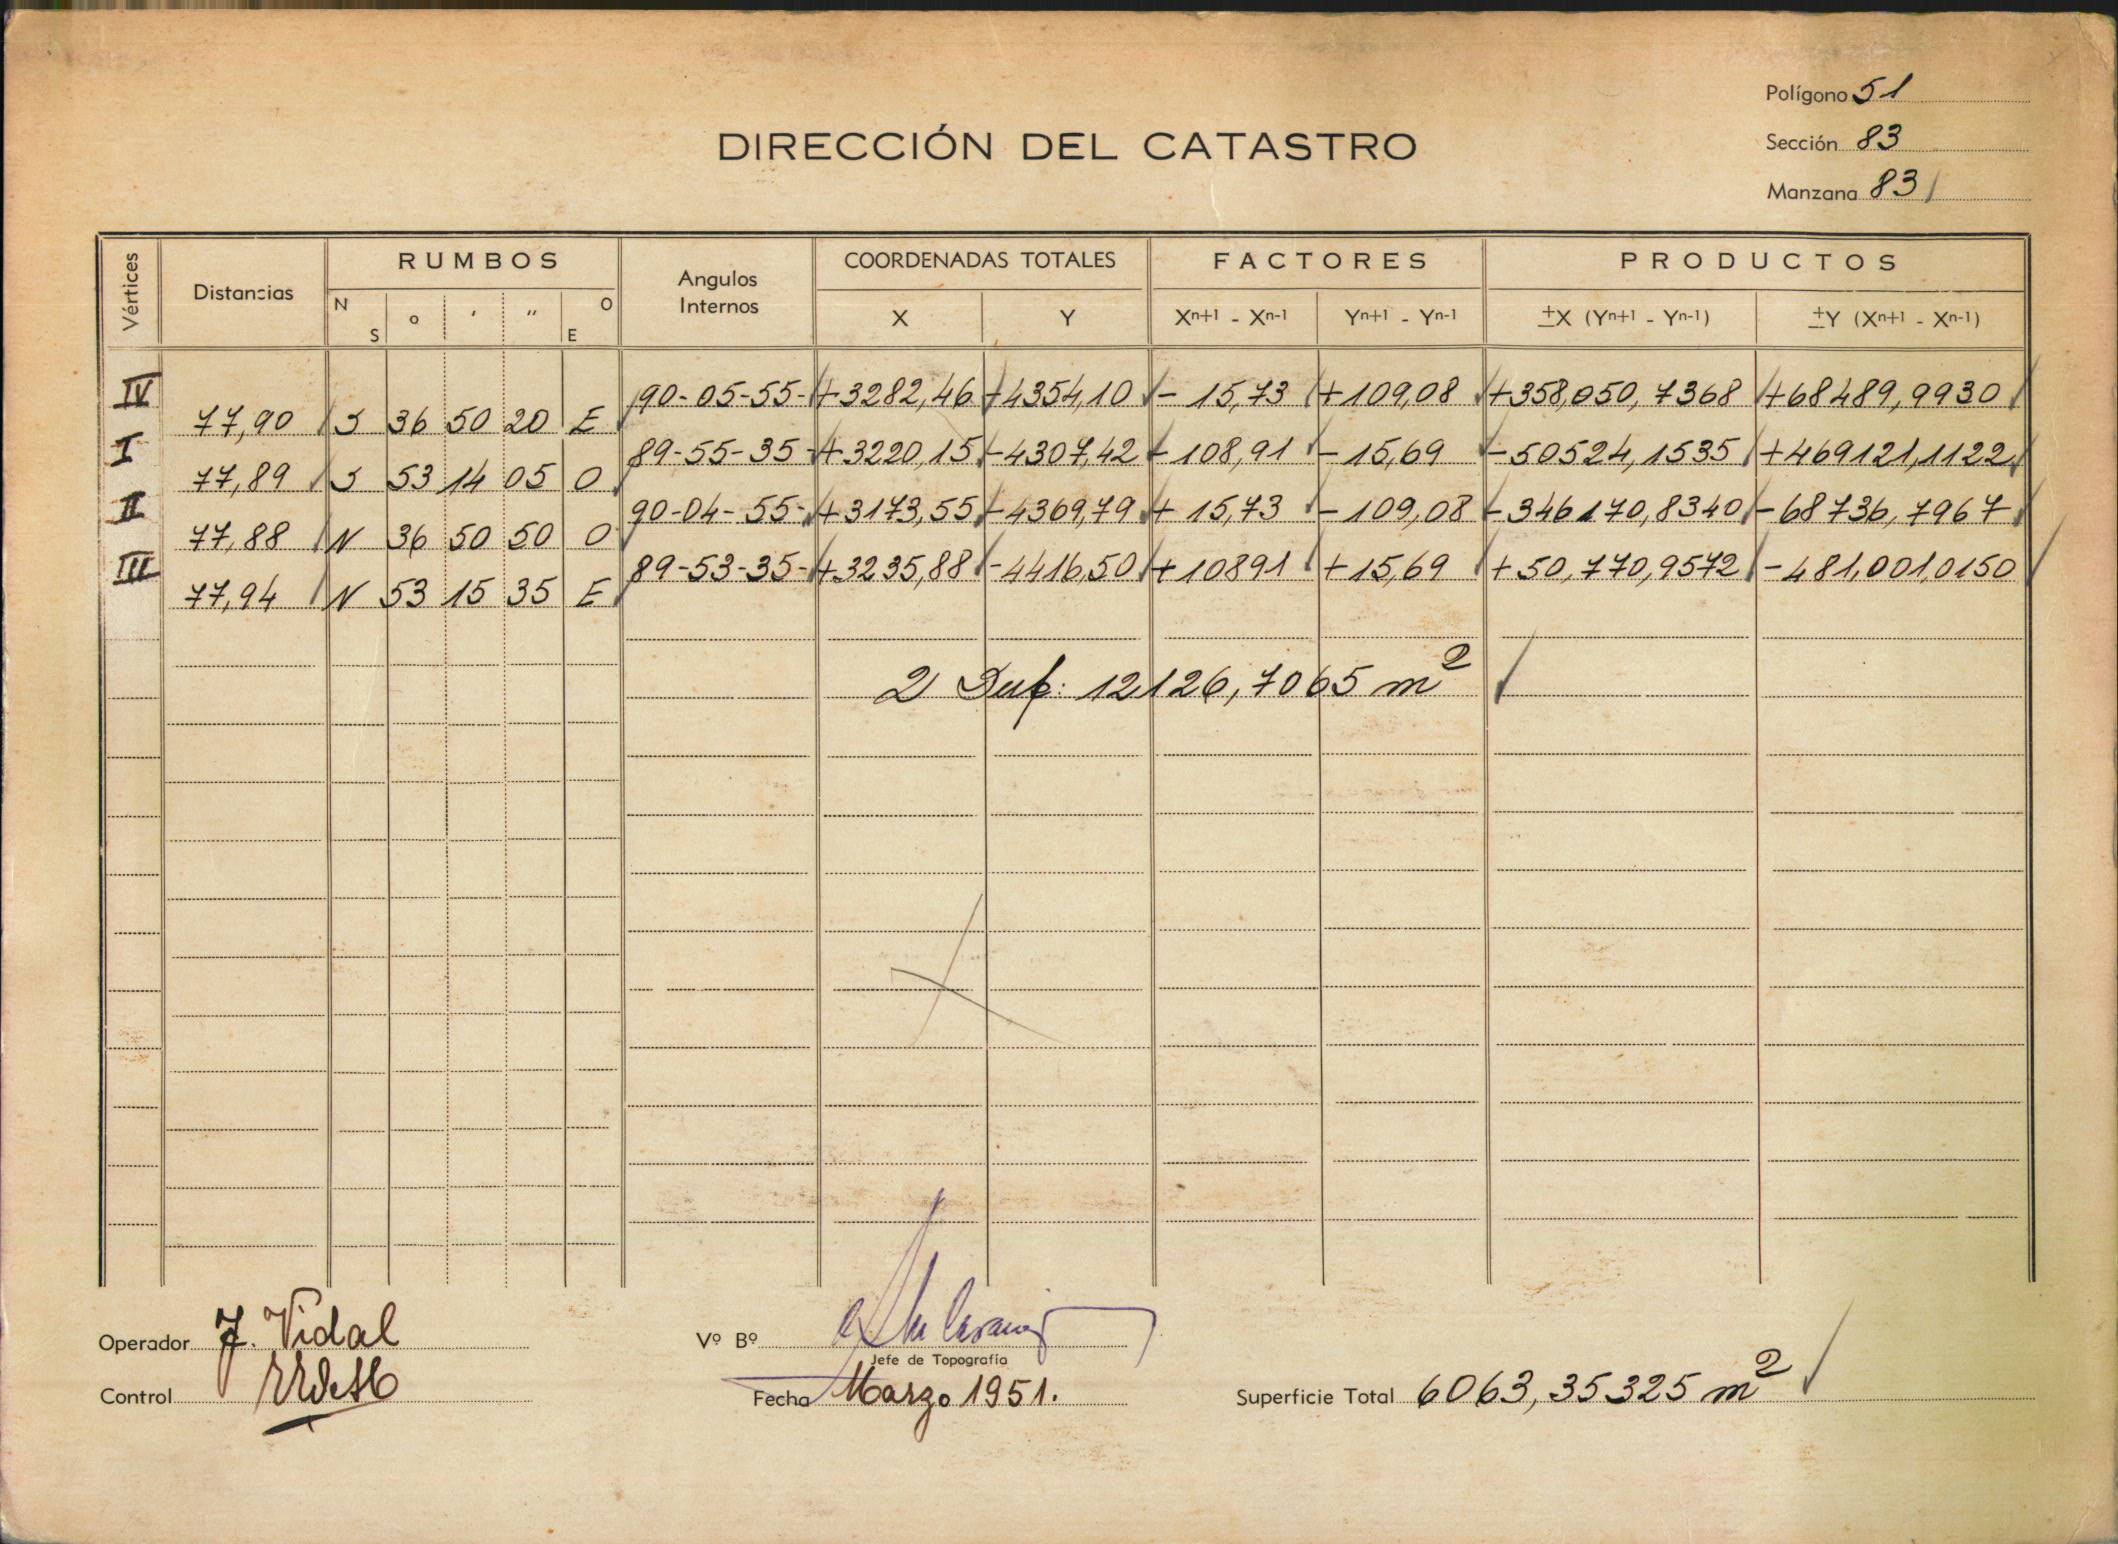 Polígono 51
DIRECCIÓN DEL CATASTRO
Sección 83
Manzana 83
Vértices
Distancias
RUMBOS
N S o ' " O E
Angulos Internos
COORDENADAS TOTALES
X Y
FACTORES
Xn+1 - Xn-1 Yn+1 - Yn-1
PRODUCTOS
±X (Yn+1 - Yn-1) ±Y (Xn+1 - Xn-1)
IV 90-05-55- +3282,46 -4354,10 - 15,73 +109,08 +358,050,7368 +68489,9930
77,90 S 36 50 20 E
I 89-55-35- +3220,15 -4307,42 -108,91 -15,69 -50524,1535 +469121,1122
77,89 S 53 14 05 O
II 90-04-55- +3173,55 -4369,79 + 15,73 -109,08 -346170,8340 -68736,7967
77,88 N 36 50 50 O
III 89-53-35- +3235,88 -4416,50 +10891 +15,69 +50,770,9572 -481,001,0150
77,94 N 53 15 35 E
2 Sup: 12126,7065 m²
Operador J. Vidal
Vº Bº
Jefe de Topografía
Control
Fecha Marzo 1951.
Superficie Total 6063,35325 m²